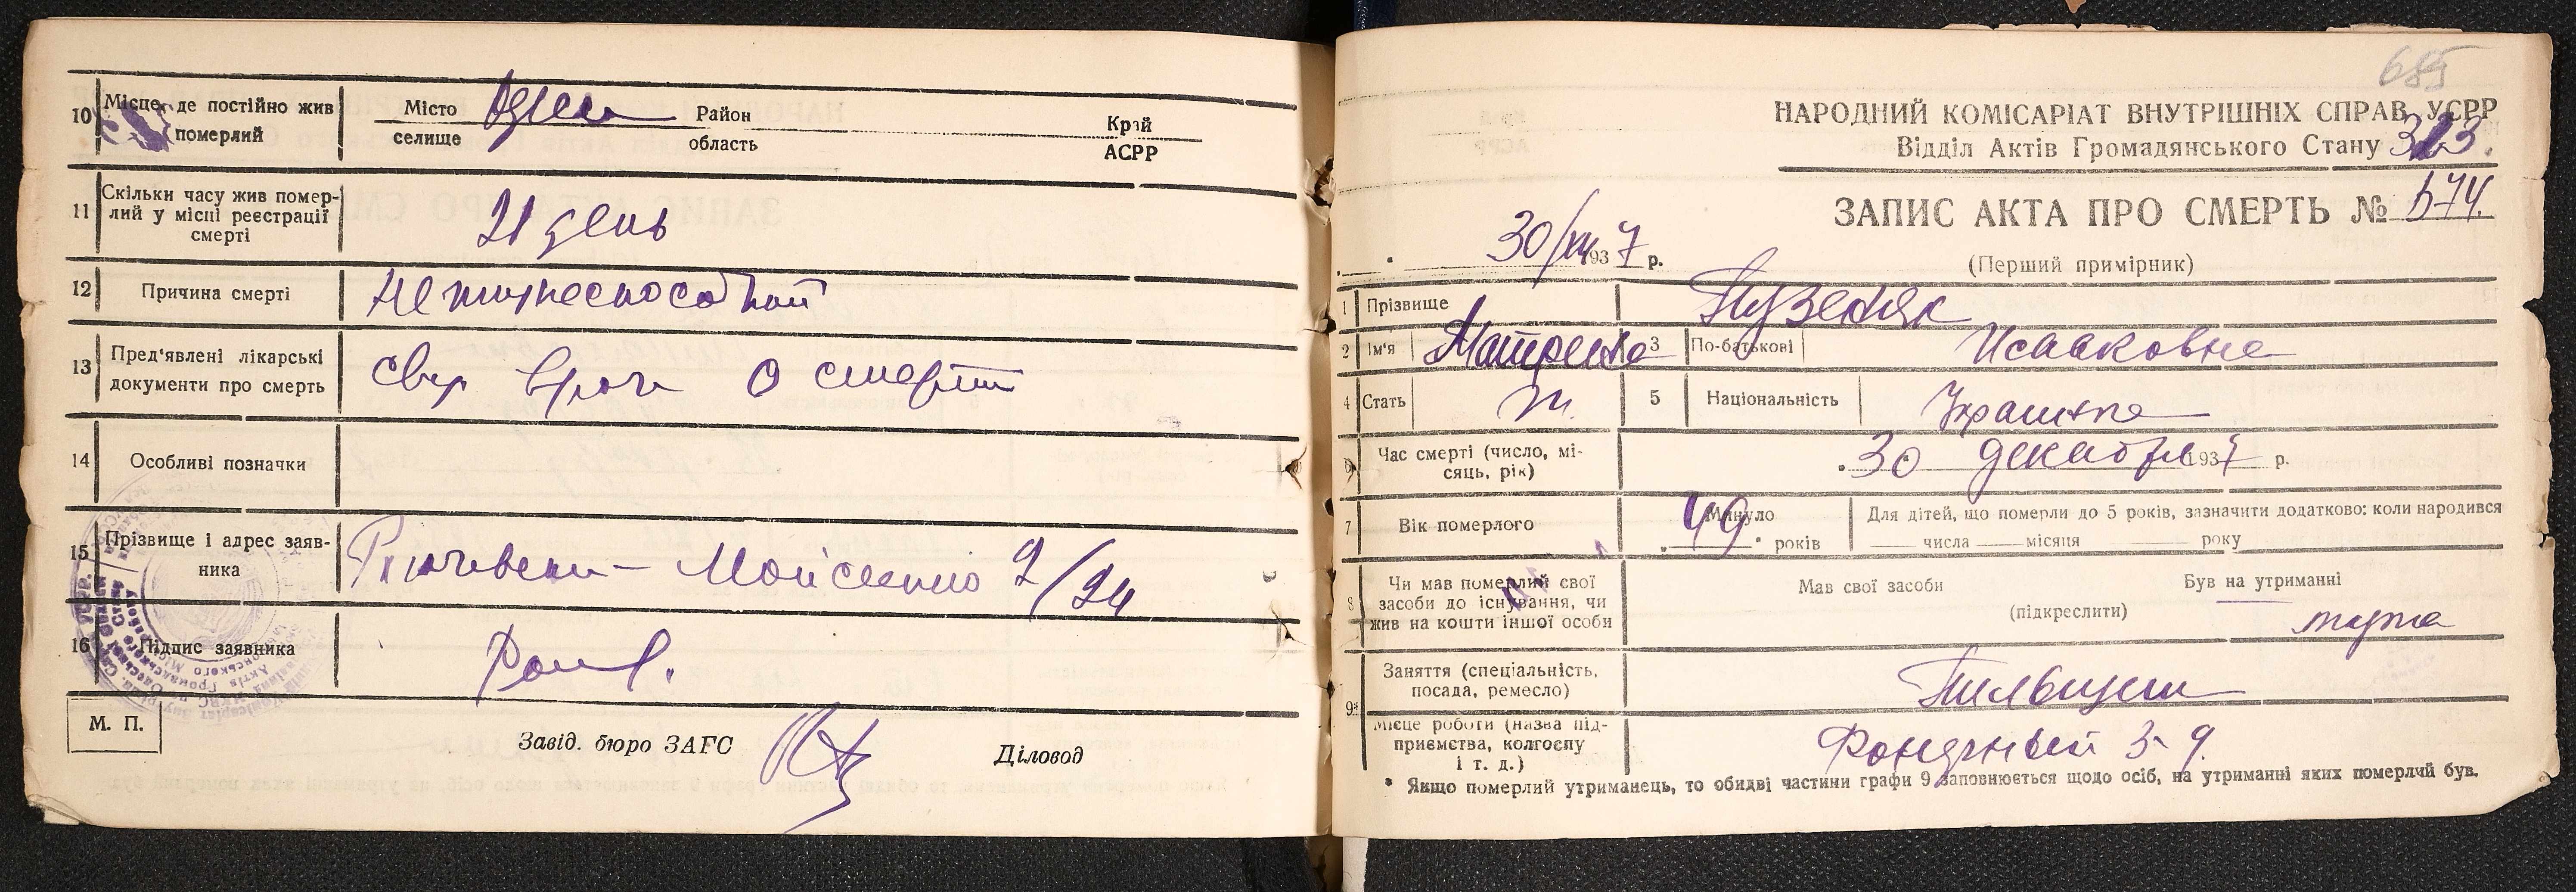 10 Місце, де постійно жив померлий
Місто селище Одесса Район область Край АСРР
11 Скільки часу жив помер-
лий у місці реєстрації
смерті
21 день
12 Причина смерті
Нежизнеспособный
13 Пред'явлені лікарські
документи про смерть
свид врача о смерти
14 Особливі позначки
15 Прізвище і адрес заяв-
ника
Мойсеенко 9/24
16 Підпис заявника
М. П.
Завід. бюро ЗАГС
Діловод
685
НАРОДНИЙ КОМІСАРІАТ ВНУТРІШНІХ СПРАВ УСРР
Відділ Актів Громадянського Стану 323.
ЗАПИС АКТА ПРО СМЕРТЬ № 574.
30/XII 1937 р.
(Перший примірник)
1 Прізвище
2 Ім'я Матрена 3 По-батькові Исааковна
4 Стать ж. 5 Національність Украинка
6 Час смерті (число, мі-
сяць, рік)
30 декабря 1937 р.
7 Вік померлого
Минуло 49. років
Для дітей, що померли до 5 років, зазначити додатково: коли народився
числа місяця року
8 Чи мав померлий свої
засоби до існування, чи
жив на кошти іншої особи
Мав свої засоби Був на утриманні
(підкреслити)
мужа
9* Заняття (спеціальність,
посада, ремесло)
Пильщик
Місце роботи (назва під-
приємства, колгоспу
і т. д.)
Фондуный 5-9.
* Якщо померлий утриманець, то обидві частини графи 9 заповнюється щодо осіб, на утриманні яких померлий був.